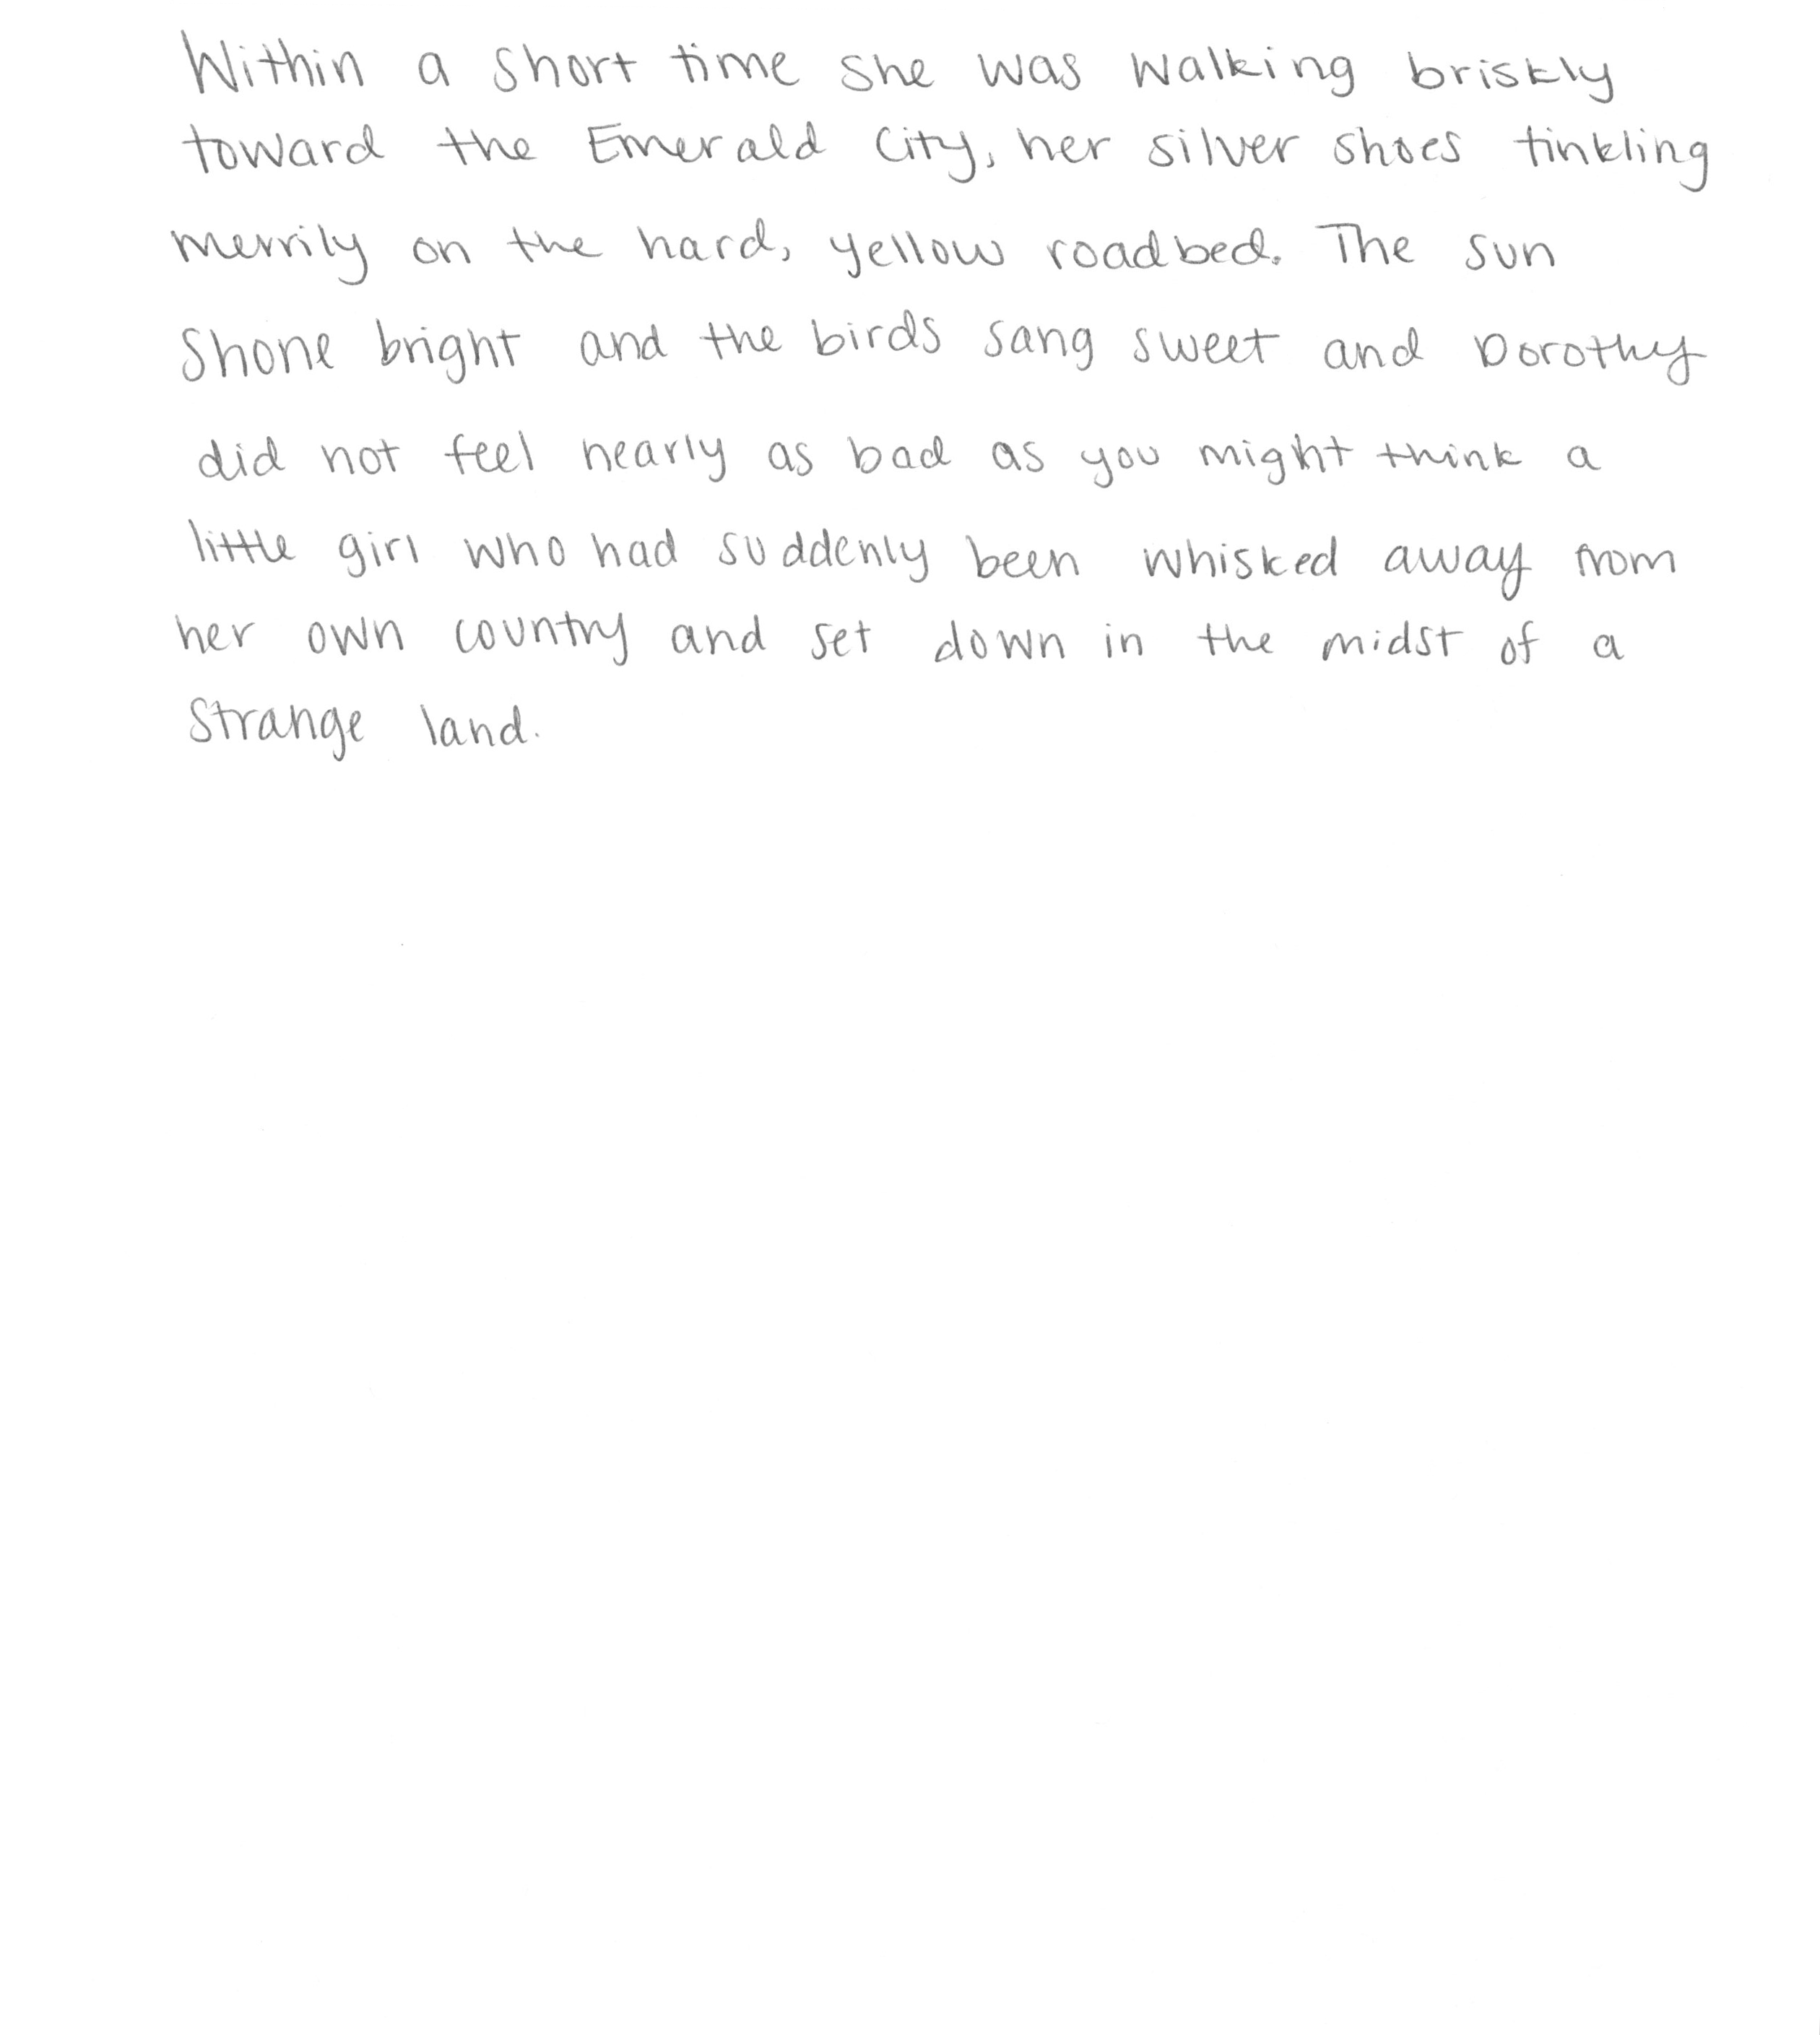 Within a short time she was walking briskly
toward the Emerald City, her silver shoes tinkling
merrily on the hard, yellow roadbed. The sun
shone bright and the birds sang sweet and Dorothy
did not feel nearly as bad as you might think a
little girl who had suddenly been whisked away from
her own country and set down in the midst of a
strange land.